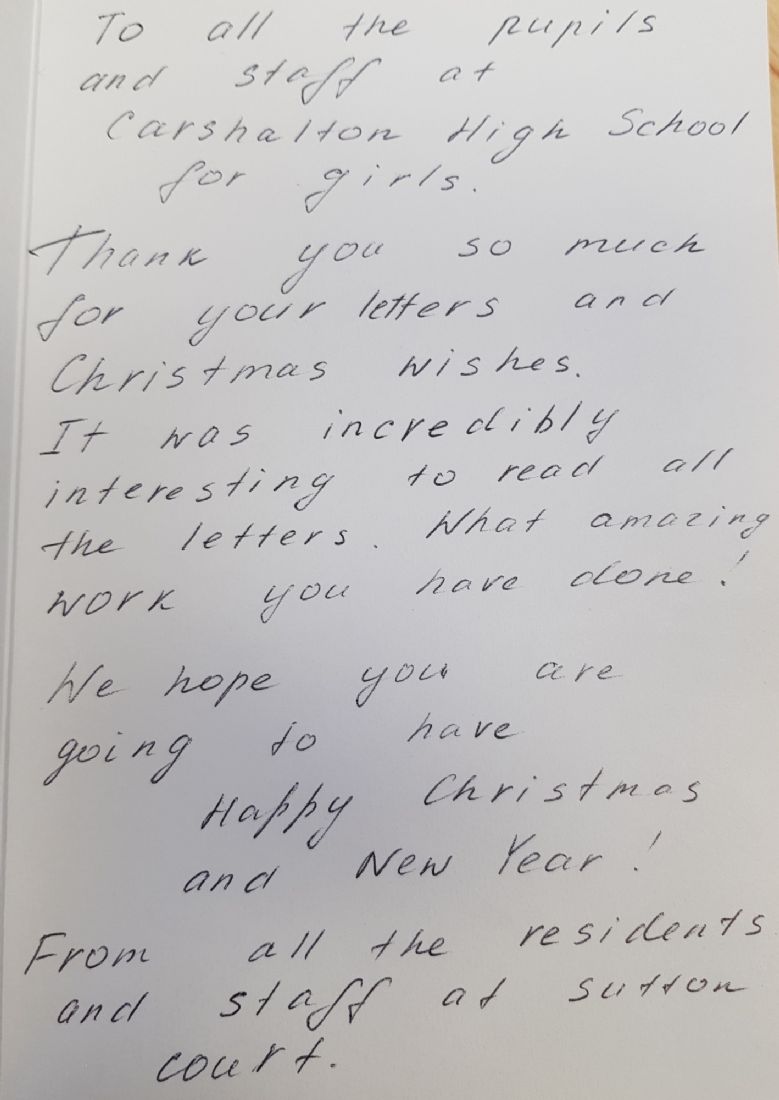 To all the pupils
and staff at
Carshalton High School
for girls.
Thank you so much
for your letters and
Christmas wishes.
It was incredibly
interesting to read all
the letters. What amazing
work you have done!
We hope you are
going to have
Happy Christmas
and New Year!
From all the residents
and staff at sutton
court.